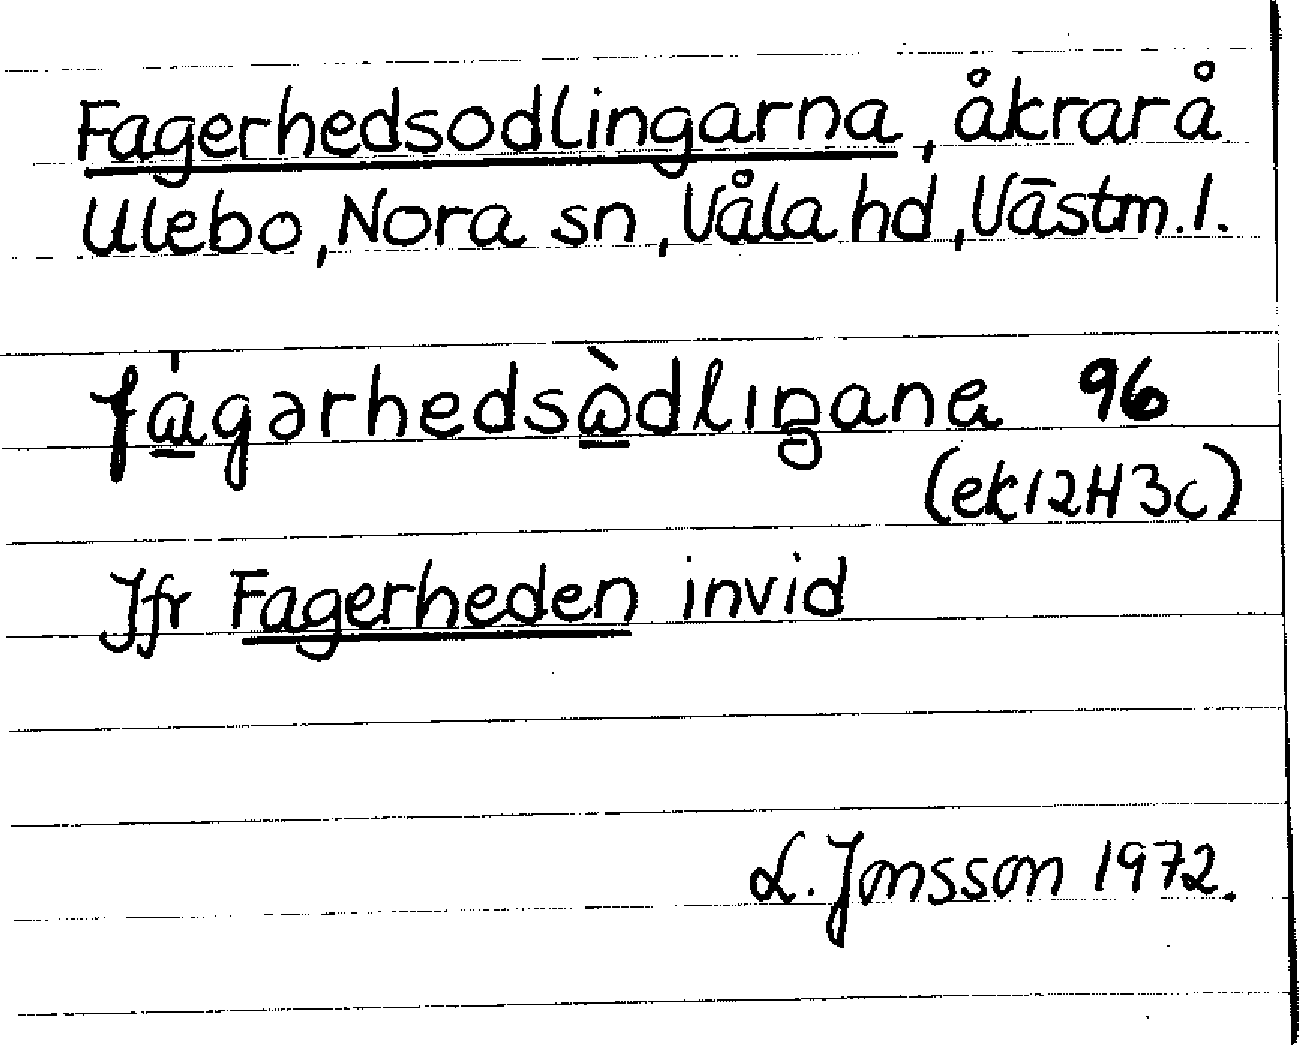 Fagerhedsodlingarna, åkrar å
Ulebo, Nora sn, Våla hd, Västm. l.
fágərhedsòdlıŋana 96
(ek 12H3c)
Jfr Fagerheden invid
L. Jonsson 1972.